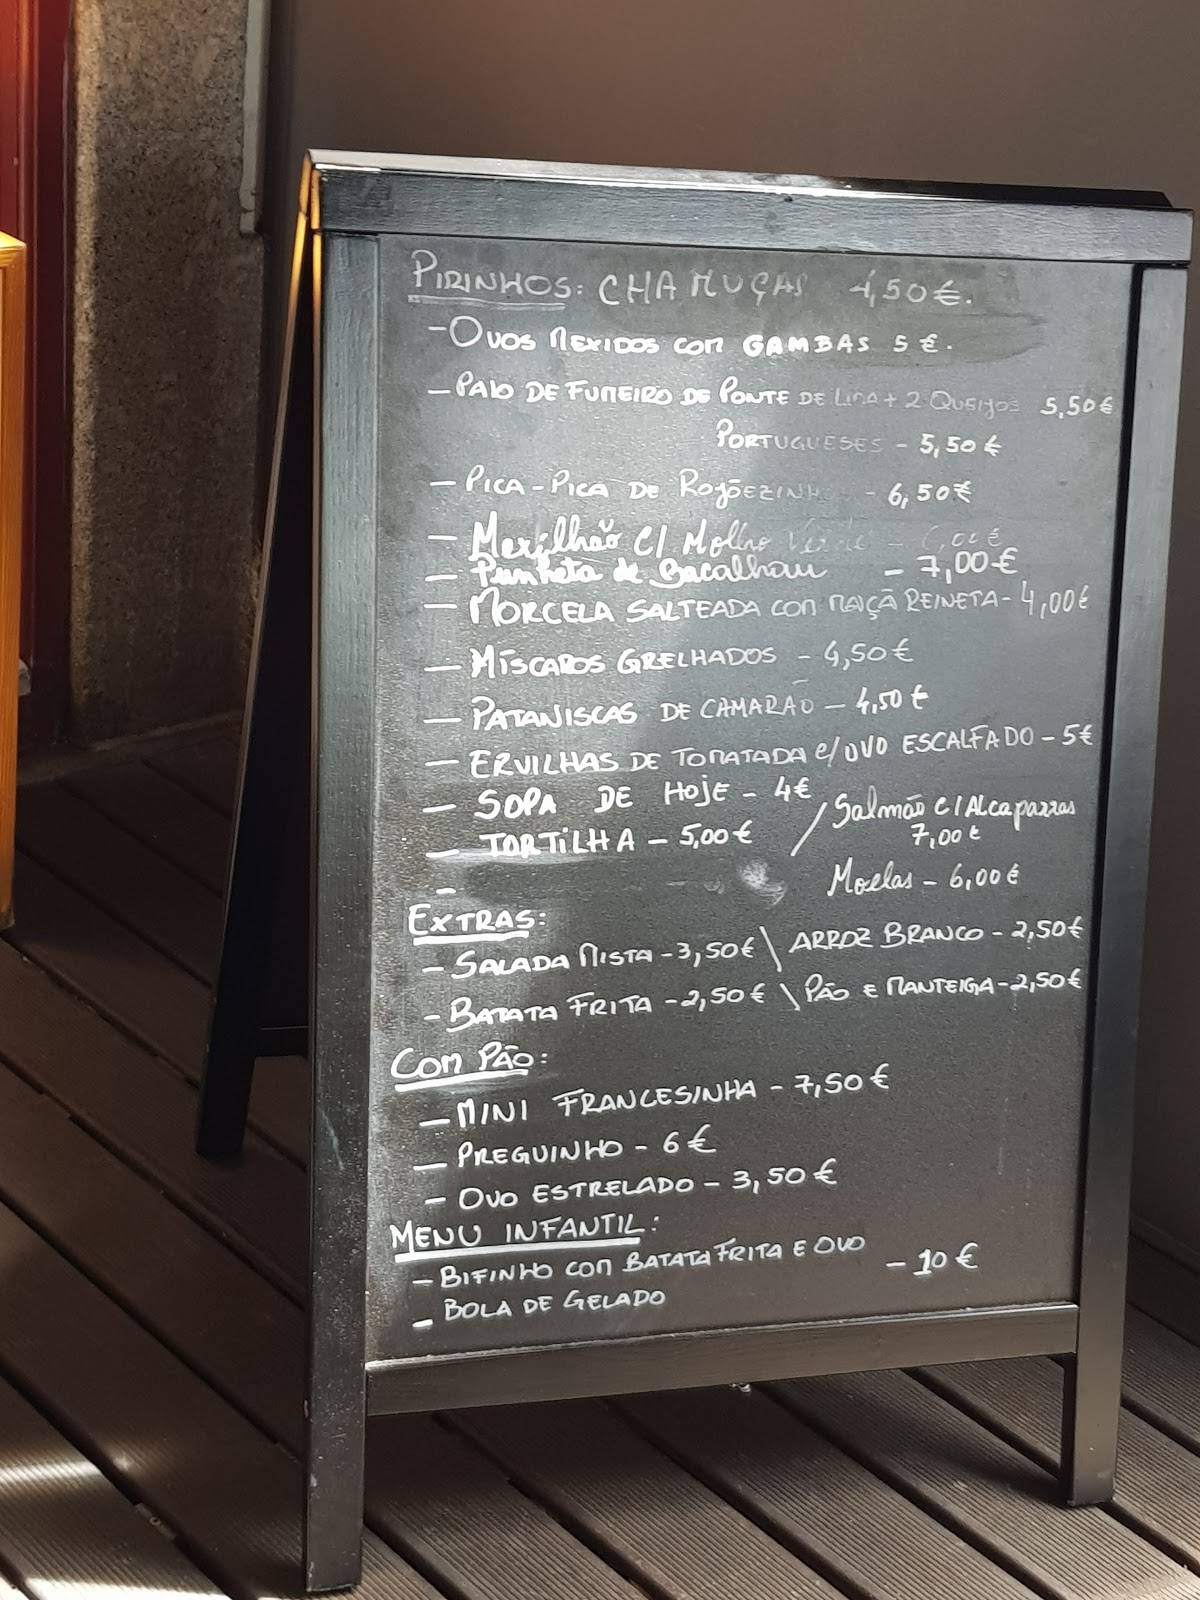 PIRINHOS: CHAMUÇAS 4,50€.
- OVOS MEXIDOS COM GAMBAS 5€.
- PAIO DE FUMEIRO DE PONTE DE LIMA + 2 QUEIJOS 5,50€
PORTUGUESES - 5,50€
- PICA-PICA DE ROJÕEZINHOS - 6,50€
- Mexilhão c/ Molho Verde - 6,00€
- Punheta de Bacalhau - 7,00€
- MORCELA SALTEADA COM MAÇÃ REINETA - 4,00€
- MÍSCAROS GRELHADOS - 4,50€
- PATANISCAS DE CAMARÃO - 4,50€
- ERVILHAS DE TOMATADA C/ OVO ESCALFADO - 5€
- SOPA DE HOJE - 4€ / Salmão c/ Alcaparras
- TORTILHA - 5,00€ 7,00€
- Moelas - 6,00€
EXTRAS:
- SALADA MISTA - 3,50€ \ ARROZ BRANCO - 2,50€
- BATATA FRITA - 2,50€ \ PÃO E MANTEIGA - 2,50€
COM PÃO:
- MINI FRANCESINHA - 7,50€
- PREGUINHO - 6€
- OVO ESTRELADO - 3,50€
MENU INFANTIL:
- BIFINHO COM BATATA FRITA E OVO - 10€
- BOLA DE GELADO